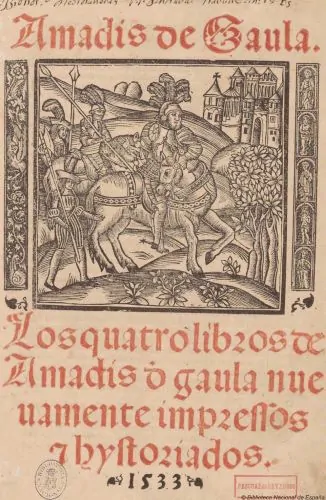 Amadis de Gaula.
Los quatro libros de
Amadis đ gaula nue
uamente impressos
⁊ hystoriados.
1533
© Biblioteca Nacional de España